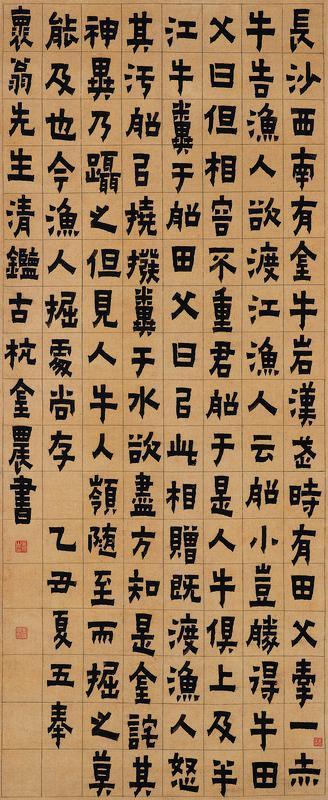 長沙西南有金牛岩漢武時有田父牽一赤
牛告漁人欲渡江漁人云船小豈勝得牛田
父曰但相容不重君船于是人牛俱上及半
江牛糞于船田父曰以此相贈既渡漁人怒
其汚船以橈撥糞于水欲盡方知是金詫其
神異乃躡之但見人牛入嶺隨至而掘之莫
能及也今漁人掘處尚存 乙丑夏五奉
翁先生清鑑古杭金農書